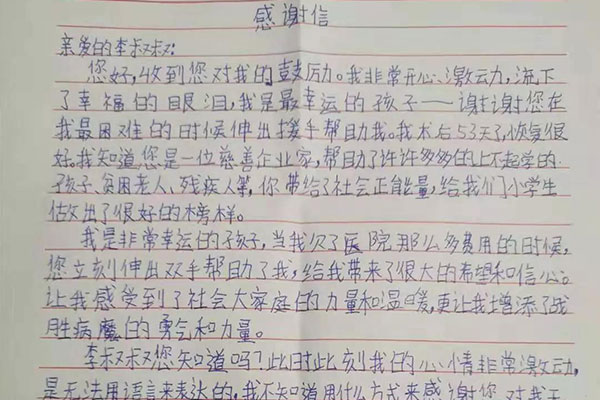 感谢信
亲爱的李叔叔:
您好,收到您对我的鼓励。我非常开心、激动,流下
了幸福的眼泪,我是最幸运的孩子——谢谢您在
我最困难的时候伸出援手帮助我。我术后53天了,恢复很
好。我知道您是一位慈善企业家,帮助了许许多多的上不起学的
孩子、贫困老人、残疾人等,你带给了社会正能量,给我们小学生
做出了很好的榜样。
我是非常幸运的孩子,当我欠了医院那么多费用的时候,
您立刻伸出双手帮助了我,给我带来了很大的希望和信心。
让我感受到了社会大家庭的力量和温暖,更让我增添了战
胜病魔的勇气和力量。
李叔叔您知道吗?此时此刻我的心情非常激动,
是无法用语言来表达的,我不知道用什么方式来感谢您对我无